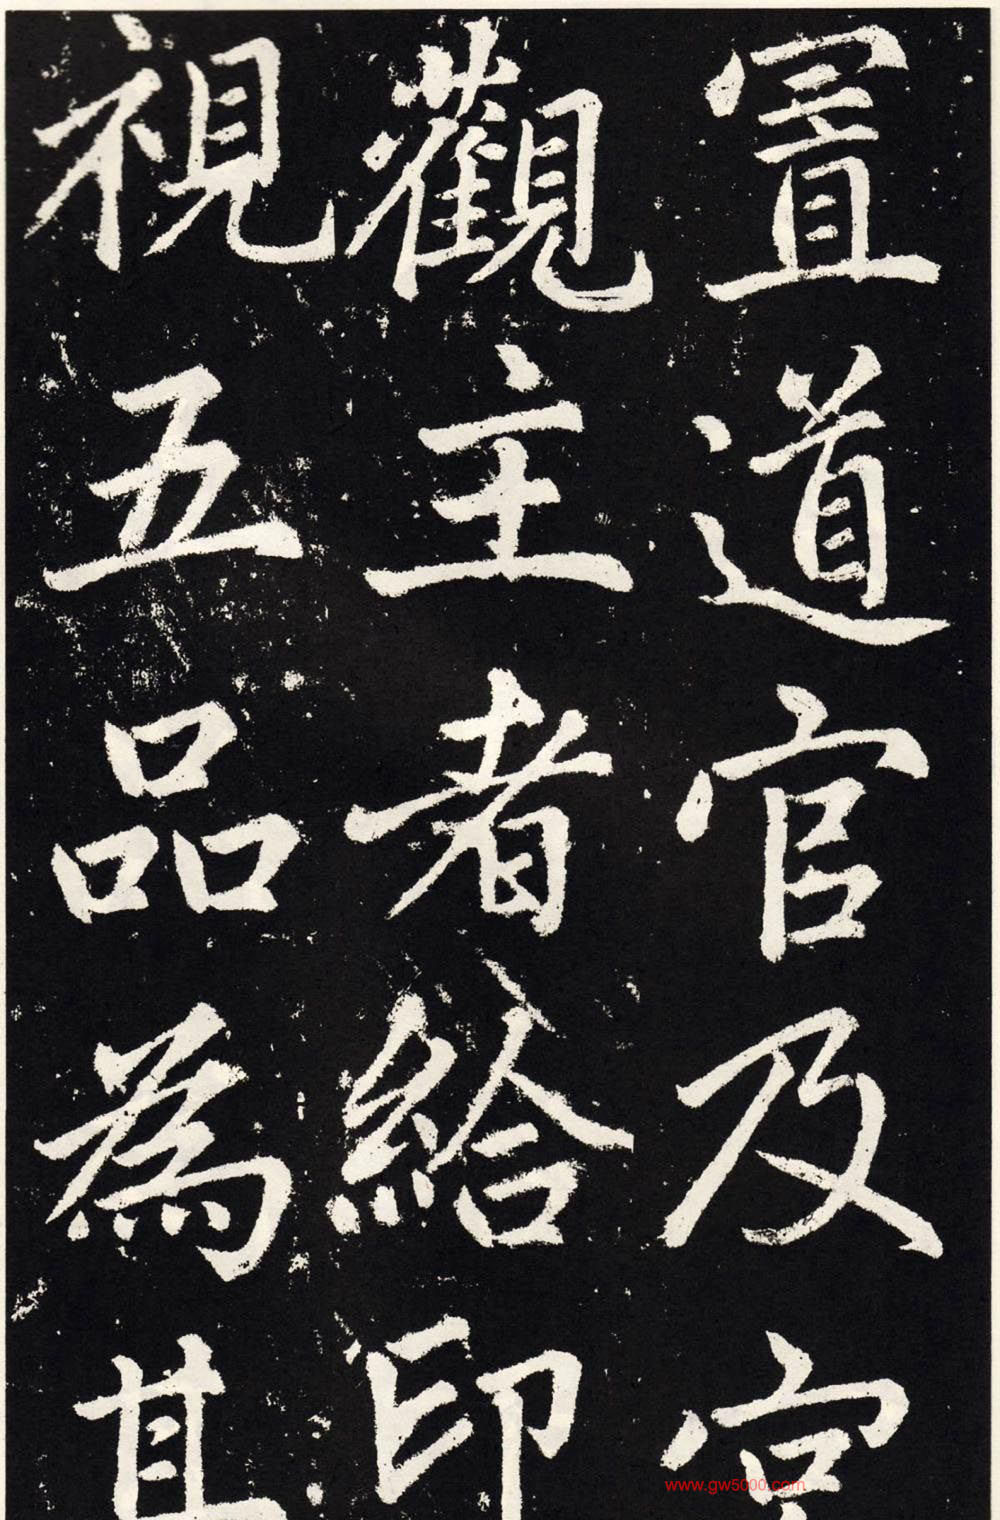 置道官及宮
觀主者給印
視五品為其
www.gw5000.com